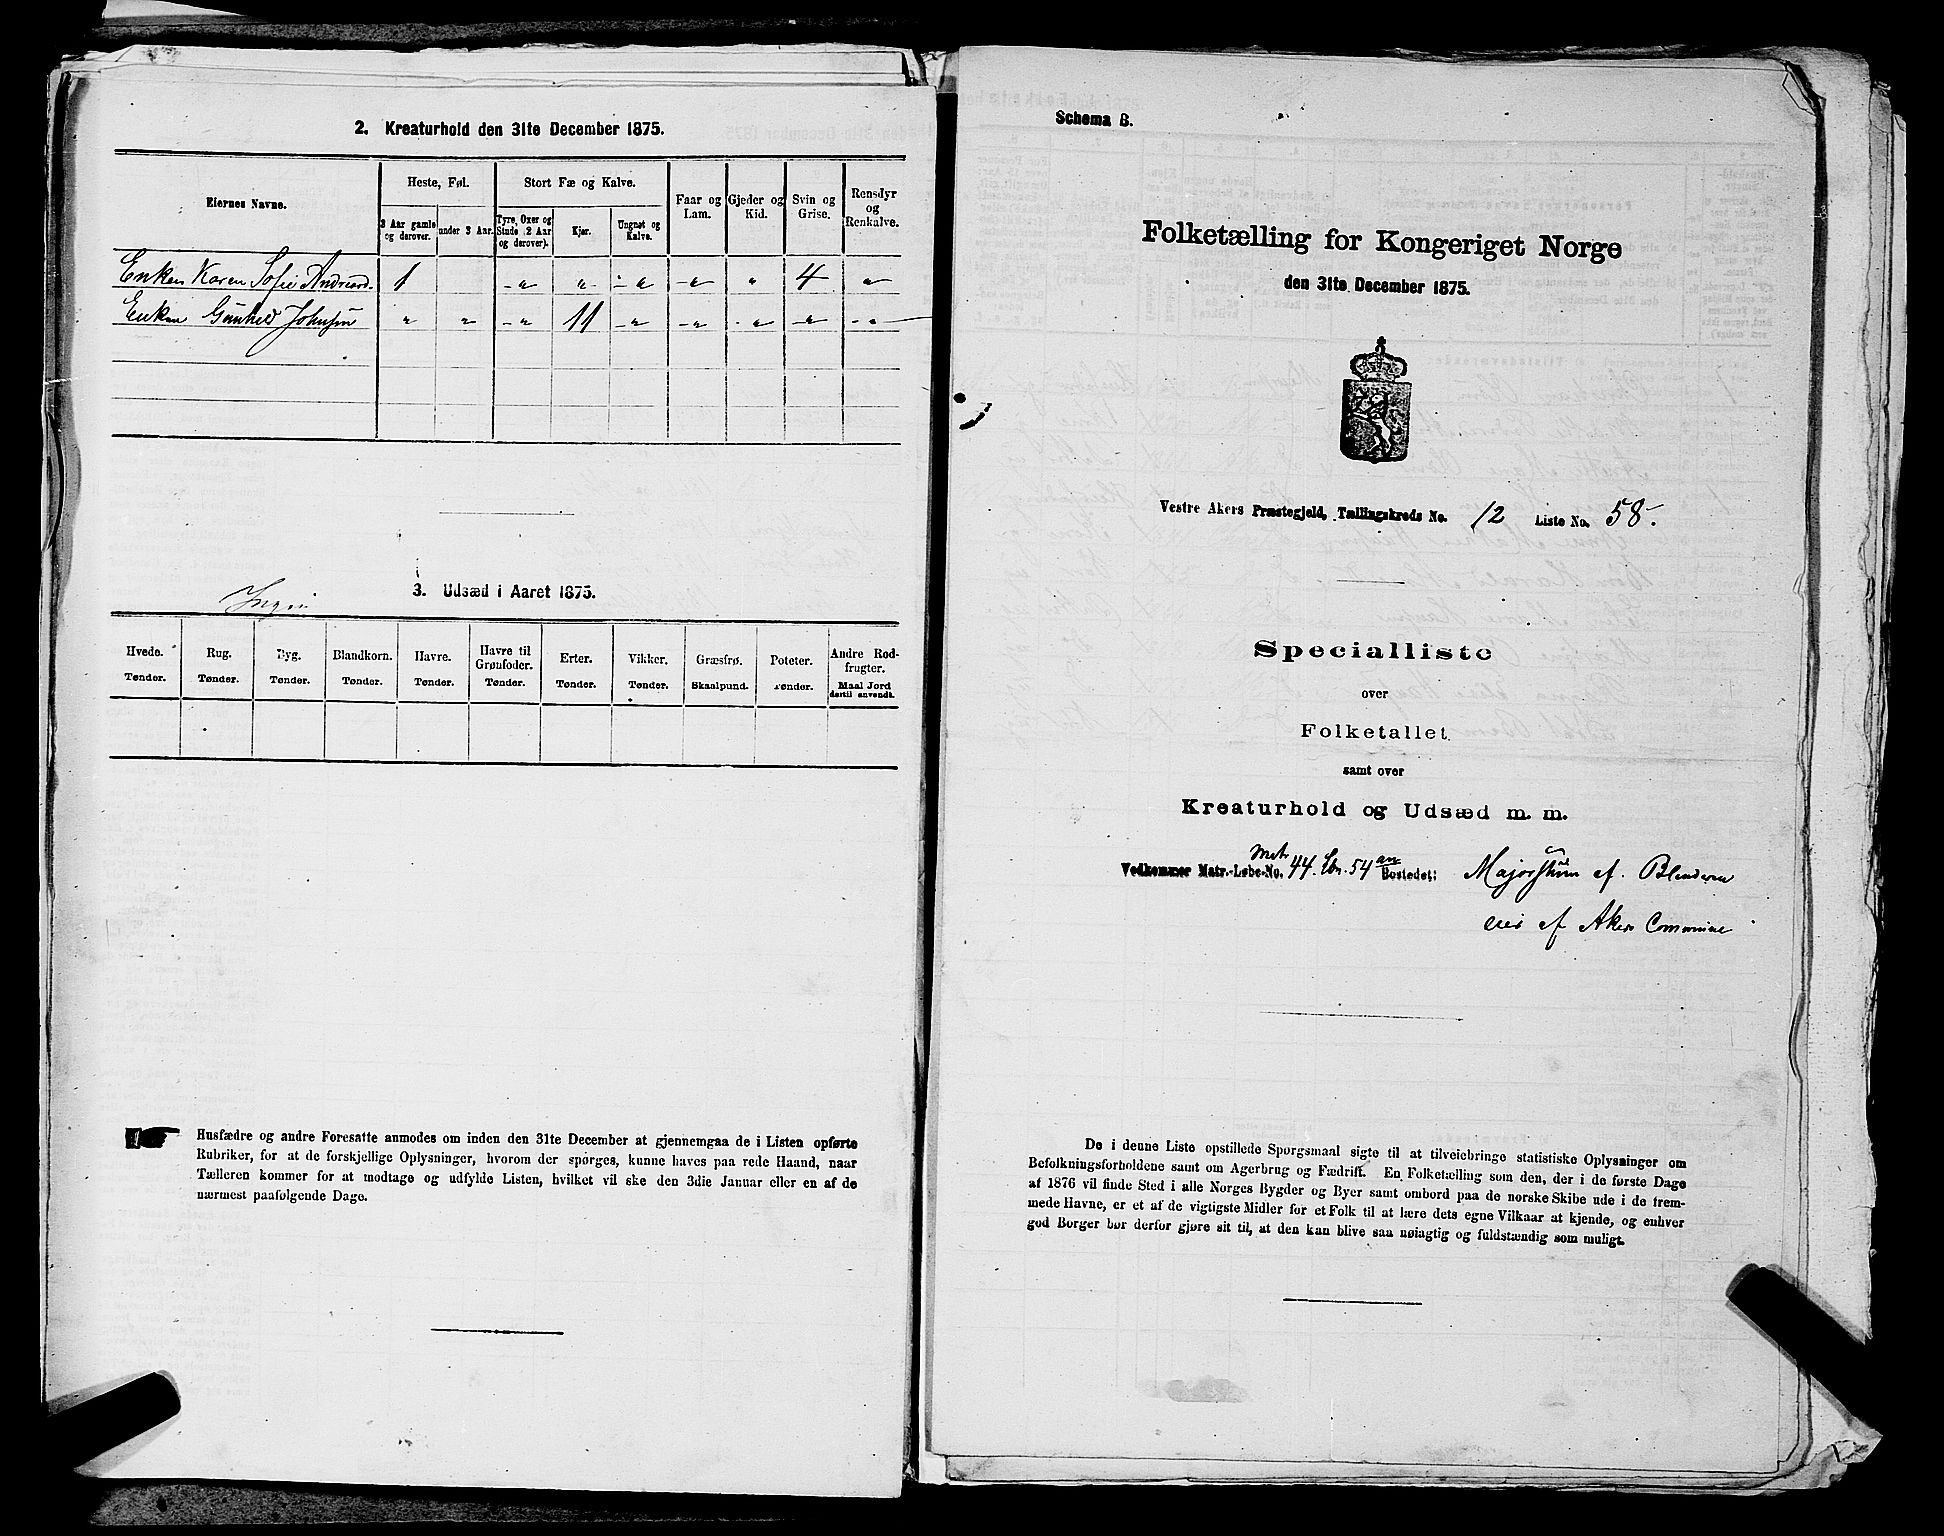 2. Kreaturhold den 31te December 1875.
Eiernes Navne.
Heste, Føl.
Stort Fæ og Kalve.
Faar og Lam.
Gjeder og Kid.
Svin og Grise.
Rensdyr og Renkalve.
3 Aar gamle og derover.
under 3 Aar.
Tyre, Oxer og Stude (2 Aar og derover).
Kjør.
Ungnøt og Kalve.
Enken Karen Sofie 1 " " " " " 4 "
Enken Gunhild Johnsen " " " 11 " " " " "
3. Udsæd i Aaret 1875.
Ingen
Hvede. Rug. Byg. Blandkorn. Havre. Havre til Grønfoder. Erter. Vikker. Græsfrø. Poteter. Andre Rodfrugter.
Tønder. Tønder. Tønder. Tønder. Tønder. Tønder. Tønder. Tønder. Skaalpund. Tønder. Maal Jord dertil anvendt.
Husfædre og andre Foresatte anmodes om inden den 31te December at gjennemgaa de i Listen opførte
Rubriker, for at de forskjellige Oplysninger, hvorom der spørges, kunne haves paa rede Haand, naar
Tælleren kommer for at modtage og udfylde Listen, hvilket vil ske den 3die Januar eller en af de
nærmest paafølgende Dage.
Schema B.
Folketælling for Kongeriget Norge
den 31te December 1875.
Vestre Akers Præstegjeld, Tællingskreds No. 12 Liste No. 58.
Specialliste
over
Folketallet
samt over
Kreaturhold og Udsæd m. m.
Vedkommer Matr.-Løbe-No. 44. Lbn. 54 Bostedet: Majorstuen af Blinderen
af Akers Commune
De i denne Liste opstillede Spørgsmaal sigte til at tilveiebringe statistiske Oplysninger om
Befolkningsforholdene samt om Agerbrug og Fædrift. En Folketælling som den, der i de første Dage
af 1876 vil finde Sted i alle Norges Bygder og Byer samt ombord paa de norske Skibe ude i de frem-
mede Havne, er et af de vigtigste Midler for et Folk til at lære dets egne Vilkaar at kjende, og enhver
god Borger bør derfor gjøre sit til, at den kan blive saa nøiagtig og fuldstændig som muligt.